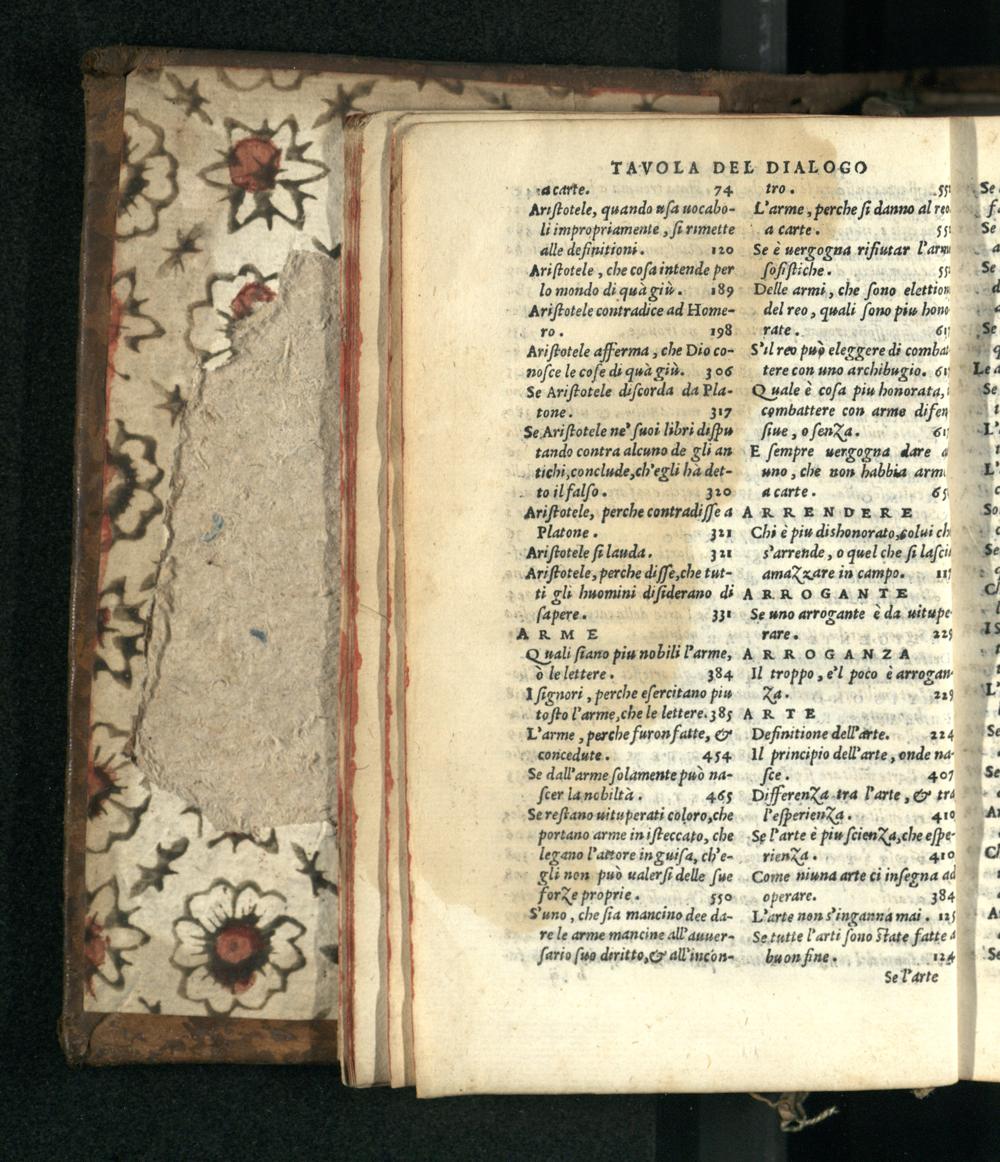 TAVOLA DEL DIALOGO
a carte. 74
Aristotele, quando usa uocabo-
li impropriamente, si rimette
alle definitioni. 120
Aristotele, che cosa intende per
lo mondo di quà giù. 189
Aristotele contradice ad Home-
ro. 198
Aristotele afferma, che Dio co-
nosce le cose di quà giù. 306
Se Aristotele discorda da Pla-
tone. 317
Se Aristotele ne' suoi libri dispu
tando contra alcuno de gli an
tichi, conclude, ch'egli hà det-
to il falso. 320
Aristotele, perche contradisse a
Platone. 321
Aristotele si lauda. 321
Aristotele, perche disse, che tut-
ti gli huomini disiderano di
sapere. 331
ARME
Quali siano piu nobili l'arme,
ò le lettere. 384
I signori, perche esercitano piu
tosto l'arme, che le lettere. 385
L'arme, perche furon fatte, &
concedute. 454
Se dall'arme solamente può na-
scer la nobiltà. 465
Se restano uituperati coloro, che
portano arme in isteccato, che
legano l'attore in guisa, ch'e-
gli non può ualersi delle sue
forze proprie. 550
S'uno, che sia mancino dee da-
re le arme mancine all'auuer-
sario suo diritto, & all'incon-
tro. 55
L'arme, perche si danno al reo
a carte. 55
Se è uergogna rifiutar l'arme
sofistiche. 55
Delle armi, che sono elettion
del reo, quali sono piu hono
rate. 61
S'il reo può eleggere di combat
tere con uno archibugio. 61
Quale è cosa piu honorata,
combattere con arme difen
siue, o senza. 61
E sempre uergogna dare a
uno, che non habbia arm
a carte. 65
ARRENDERE
Chi è piu dishonorato, colui ch
s'arrende, o quel che si lascia
amazzare in campo. 11
ARROGANTE
Se uno arrogante è da uitupe
rare. 229
ARROGANZA
Il troppo, e'l poco è arrogan
za. 229
ARTE
Definitione dell'arte. 224
Il principio dell'arte, onde na-
sce. 407
Differenza tra l'arte, & tra
l'esperienza. 410
Se l'arte è piu scienza, che espe-
rienza. 410
Come niuna arte ci insegna ad
operare. 384
L'arte non s'inganna mai. 125
Se tutte l'arti sono state fatte a
buon fine. 124
Se l'arte